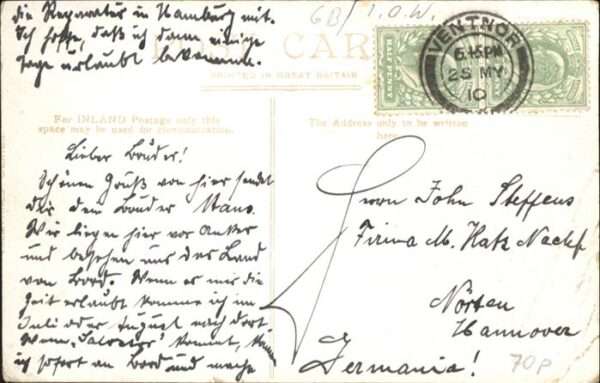 die Reparatur in Hamburg mit.
Ich hoffe, daß ich dann einige
Tage erlaubt bekomme.
GB/ I.O.W.
POST CARD
PRINTED IN GREAT BRITAIN
HALF PENNY
VENTNOR
6.45PM
25 MY
10
For INLAND Postage only this
space may be used for communication.
The Address only to be written
here.
Lieber Bruder!
Schönen Gruß von hier sendet
Dir dein Bruder Hans.
Wir liegen hier vor Anker
und besehen uns das Land
von Bord. Wenn es mir die
Zeit erlaubt komme ich im
Juli oder August nach dort.
Wenn „Salvator" kommt, komme
ich sofort an Bord und mache
Herrn John Steffens
Firma M. Katz Nachf
Nörten
Hannover
Germania!
70p